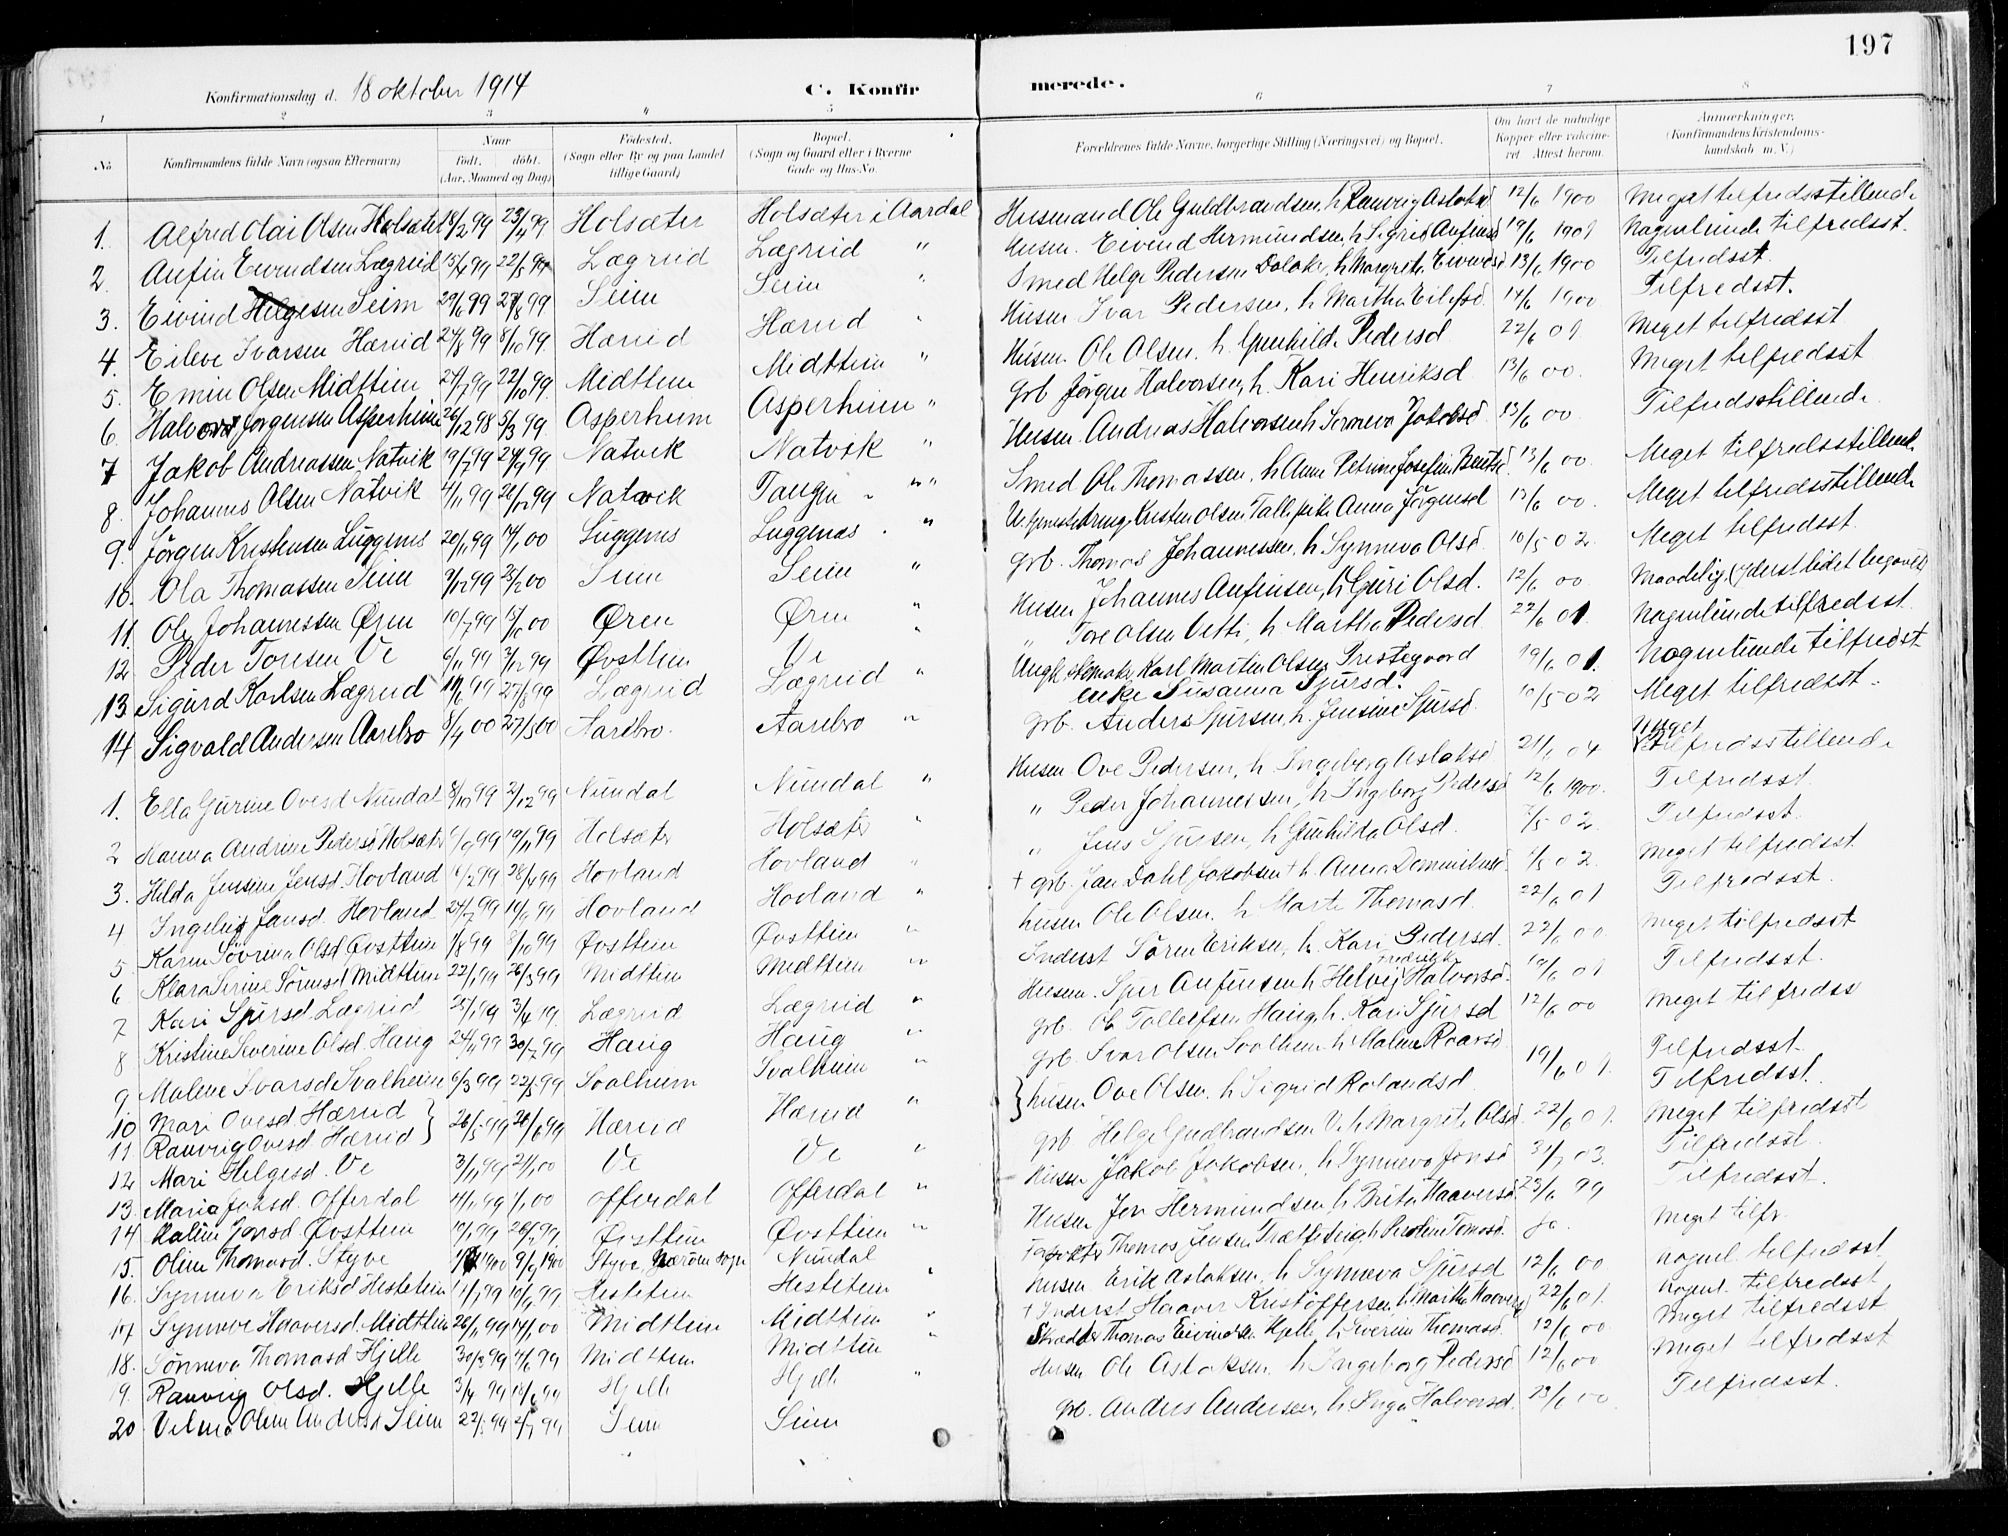 197
Konfirmationsdag d. 18 oktober 1914 C. Konfirmerede.
1 2 3 4 5 6 7 8
No. Konfirmandens fulde Navn (ogsaa Efternavn) Naar født. døbt. (Aar, Maaned og Dag) Fødested. (Sogn eller By og paa Landet tillige Gaard) Bopæl. (Sogn og Gaard eller i Byerne Gade og Hus-No. Forældrenes fulde Navne, borgerlige Stilling (Næringsvei) og Bopæl. Om havt de naturlige Kopper eller vaccineret. Attest herom. Anmærkninger. (Konfirmandens Kristendomskundskab m. V.)
1. Alfred Olai Olsen Holsæter 18/2 99 23/4 99 Holsæter Holsæter i Aardal Husmand Ole Guldbrandsen, h Ranveig Aslaksd 12/6 1900 Meget tilfredsstillende
2. Anfin Eivindsen Lægreid 13/4 99 22/5 99 Lægreid Lægreid " Husm. Eivind Hermundsen, h Sigrid Anfinsd 19/6 1901 Nogenlunde tilfredsst.
3. Eivind Helgesen Seim 29/6 99 27/8 99 Seim Seim " Smed Helge Pedersen Dalaker, h Margrete Eivindsd 13/6 1900 Tilfredsst.
4. Eileve Ivarsen Hæreid 24/8 99 8/10 99 Hæreid Hæreid " Husm Ivar Pedersen, h Martha Eilefsd 14/6 1900 Tilfredsst.
5. Emin Olsen Midttun 27/7 99 22/10 99 Midttun Midttun " Husm. Ole Olsen, h. Gunhilde Pedersd 22/6 01 Meget tilfredsst
6. Halvard Jørgensen Asperheim 26/12 98 5/3 99 Asperheim Asperheim " Grb Jørgen Halvorsen, h. Kari Henriksd 13/6 00. Meget tilfredsst
7 Jakob Andreassen Natvik 19/7 99 24/9 99 Natvik Natvik " Husm. Andreas Halvorsen h Synneva Jakobsd 13/6 00. Tilfredsstillende
8. Johannes Olsen Natvik 4/11 99 26/12 99 Natvik Tangen " Smed Ole Thomassen, h Anne Petrine Josefine Bentsd 13/6 00 Meget tilfredsstillende
9. Jørgen Kristensen Luggenes 20/11 99 14/1 00 Luggenes Luggenes " Kristen Olsen Anna Jørgensd 13/6 00. Meget tilfredsstillende
10. Ola Thomassen Seim 9/12 99 25/2 00 Seim Seim " Grb. Thomas Johannessen, h Synneva Olsd 10/5 02. Meget tilfredsst.
11. Ole Johannessen Øren 10/7 99 00 Øren Øren " Husm Johannes Anfinsen, h Guri Olsd. 12/6 00 Maadelig
12. Peder Toresen Ve 6/11 99 3/12 99 Øvsttun Ve " " Tore Olsen Vetti, h Martha Pedersd 22/6 01 Nogenlunde tilfredsst.
13. Sigurd Karlsen Lægreid 11/6 99 27/8 99 Lægreid Lægreid " Karl Martin Olsen Prestegaard enke Susanna Sjursd. 19/6 01. Nogenlunde tilfredsst
14 Sigvald Andersen Aarebro 8/4 00 27/5 00 Aarebro. Aarebro " Grb. Anders Sjursen, h. Jensine Sjursd. 10/5 02 Meget tilfredsst.
1. Ella Gurine Ovesd Nundal 8/10 99 2/12 99 Nundal Nundal " Husm Ove Pedersen, h Ingeborg Aslaksd 21/6 04 Meget tilfredsstillende
2 Hanna Andrine Pedersd Holsæter Holsæter Holsæter " " Peder Johannessen, h Ingeborg Pedersd 12/6 1900. Tilfredsst.
3. Hilda Jensine Jensd. Hovland 28/4 99 Hovland Hovland " " Jens Sjursen, h Gunhilda Olsd. /5 02. Tilfredsst.
4 Ingeleif Jansd. Hovland 24/7 99 99 Hovland Hovland " † grb. Jan Dahl Jakobsen † h. Anna /5 02. Meget tilfredsst.
5 Karen Søvrina Olsd Øvsttun 1/8 99 8/10 99 Øvsttun Øvsttun " husm Ole Olsen. h Marte Thomasd. 22/6 01 Tilfredsst.
6 Klara Sirine Sørensd Midttun 22/1 99 26/3 99 Midttun Midttun " Inderst Søren Eriksen, h. Kari Pedersd. 22/6 00 Meget tilfredsst
7 Kari Sjursd. Lægreid 99 3/4 99. Lægreid Lægreid " Husm. Sjur Anfinsen h Helvig Fredrikke Halvorsd. 19/6 01 Tilfredsst.
8 Kristine Severine Olsd. Haug 24/4 99 30/7 99 Haug Haug " Grb. Ole Tollefsen Haug, h. Kari Sjursd 12/6 00 Meget tilfredss
9 Malene Ivarsd Svalheim 6/3 99 22/5 99 Svalheim Svalheim " Grb Ivar Olsen Svalheim h Malene Roarsd Tilfredsst.
10 Mari Ovesd. Hæreid } 26/5 99 26/6 99 Hæreid Hæreid " } husm Ove Olsen. h Sigrid Rolandsd 19/6 01. Tilfredsst.
11. Ranveig Ovesd Hæreid } Meget tilfredsst
12 Mari Helgesd. Ve 3/11 99 2/1 00 Ve Ve " Grb Helge Gudbrandsen Ve h Margrete Olsd 22/6 01. Tilfredsst.
13. Maria Jakobsd. Offerdal 4/11 99 1/1 00 Offerdal Offerdal " Husm Jakob Jakobsen, h Synneva Jonsd 31/7 03. Tilfredsst.
14 Malene Jonsd Øvsttun Øvsttun Øvsttun " Husm Jon Hermundsen h Brita Haaversd 23/6 99 Meget tilfr.
15. Oline Thomasd. Styve 1900 9/9 1900 Styve, Nærøens sogn Nundal Thomas Jensen Trætteteig h Pauline Tomasd. ja. nogenl. tilfredsst
16. Synneva Eriksd Hestetun 11/7 99 10/9 99 Hestetun Hestetun " Husm Erik Aslaksen, h Synneva Sjursd 12/6 00 nogenl. tilfredsst
17. Synneve Haaversd. Midttun 26/11 99 14/1 00 Midttun Midttun " † Inderst Haaver Kristoffersen h. Martha Haaversd 22/6 01. Meget tilfredsst
18. Sønneva Thomasd Hjelle 30/3 99 4/6 99 Midttun Midttun " Skrædder Thomas Eivindsen Hjelle, h Severine Thomasd. 12/6 00 Meget tilfredsst
19. Ranveig Olsd. Hjelle 3/4 99 18/6 99 Hjelle Hjelle " Husm Ole Aslaksen h Ingeborg Pedersd 12/6 00 Tilfredsst.
20 Velma Oline Andersd Seim 22/5 99 2/7 99 Seim Seim grb. Anders Andersen, h. Inga Halvorsd. 23/6 00